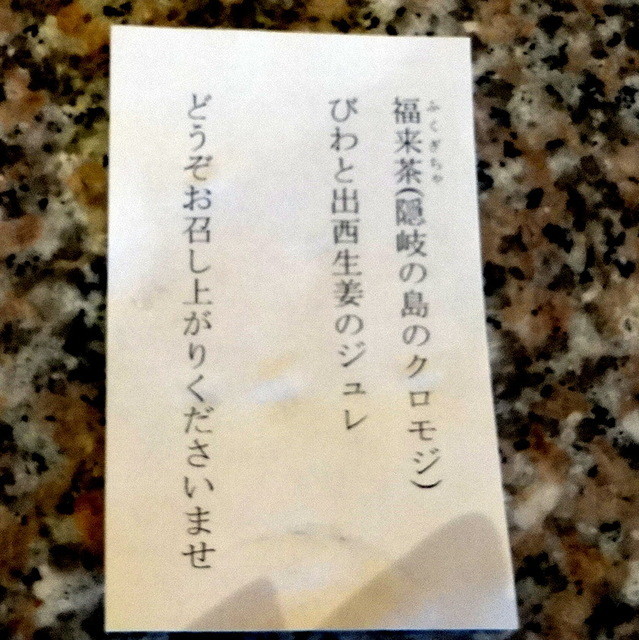 ふくぎちゃ
福来茶(隠岐の島のクロモジ)
びわと出西生姜のジュレ
どうぞお召し上がりくださいませ